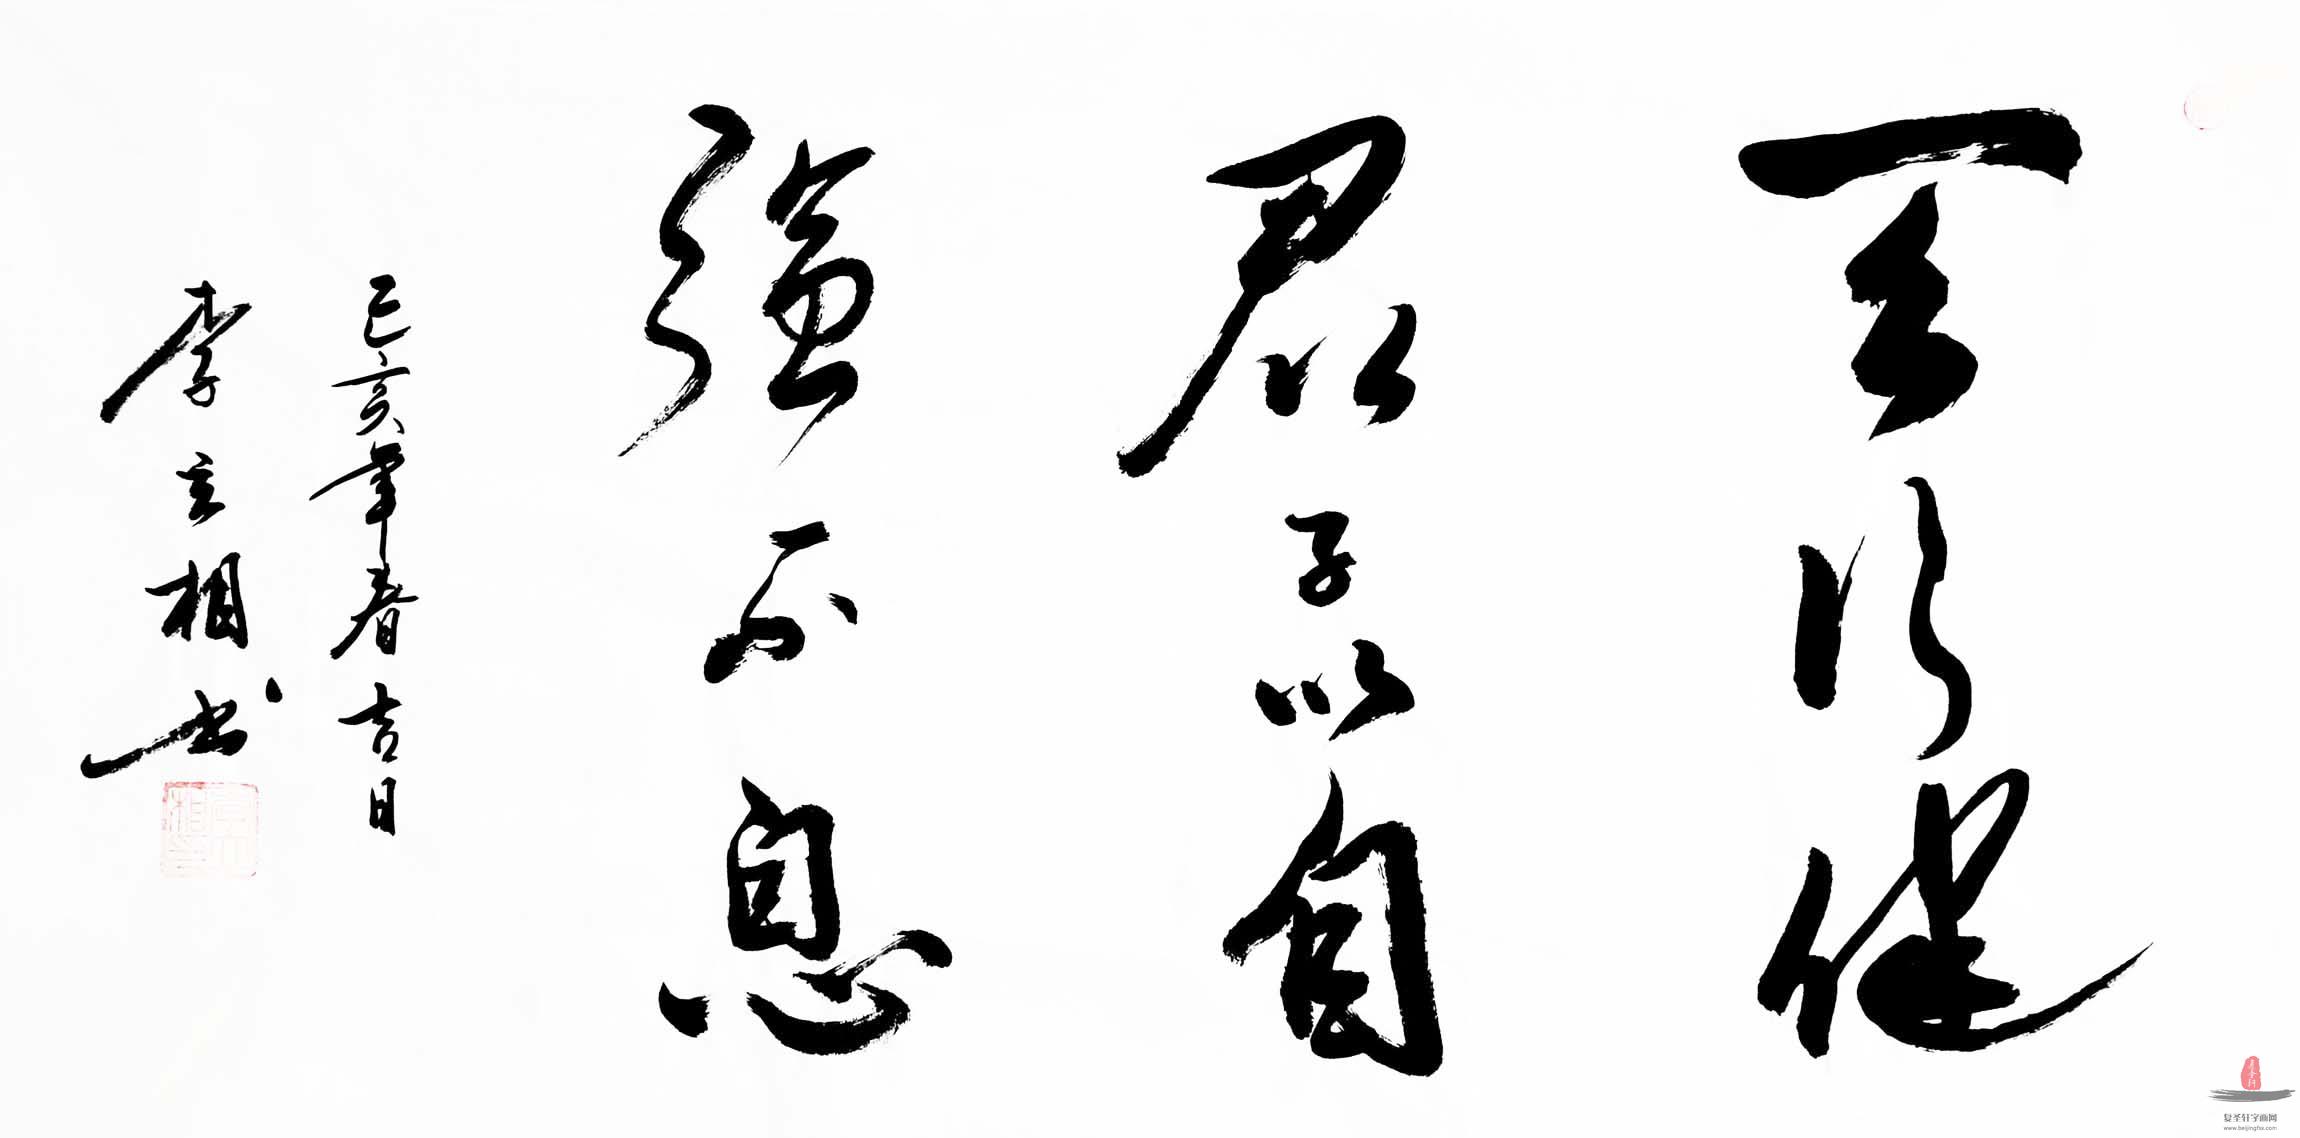 天行健
君子以自
強不息
己亥年春吉日
李相书
复圣轩字画网
www.beijingfsx.com